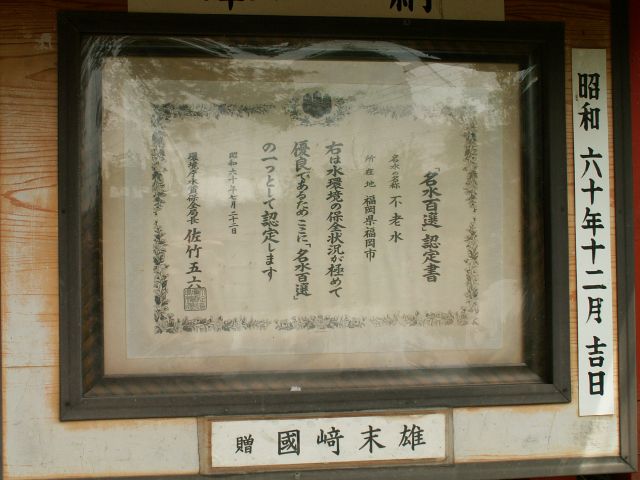 「名水百選」認定書
名水の名称 不老水
所在地 福岡県福岡市
右は水環境の保全状況が極めて
優良であるためここに「名水百選」
の一つとして認定します
昭和六十年七月二十二日
環境庁水質保全局長 佐竹五六
昭和六十年十二月吉日
贈 國﨑末雄